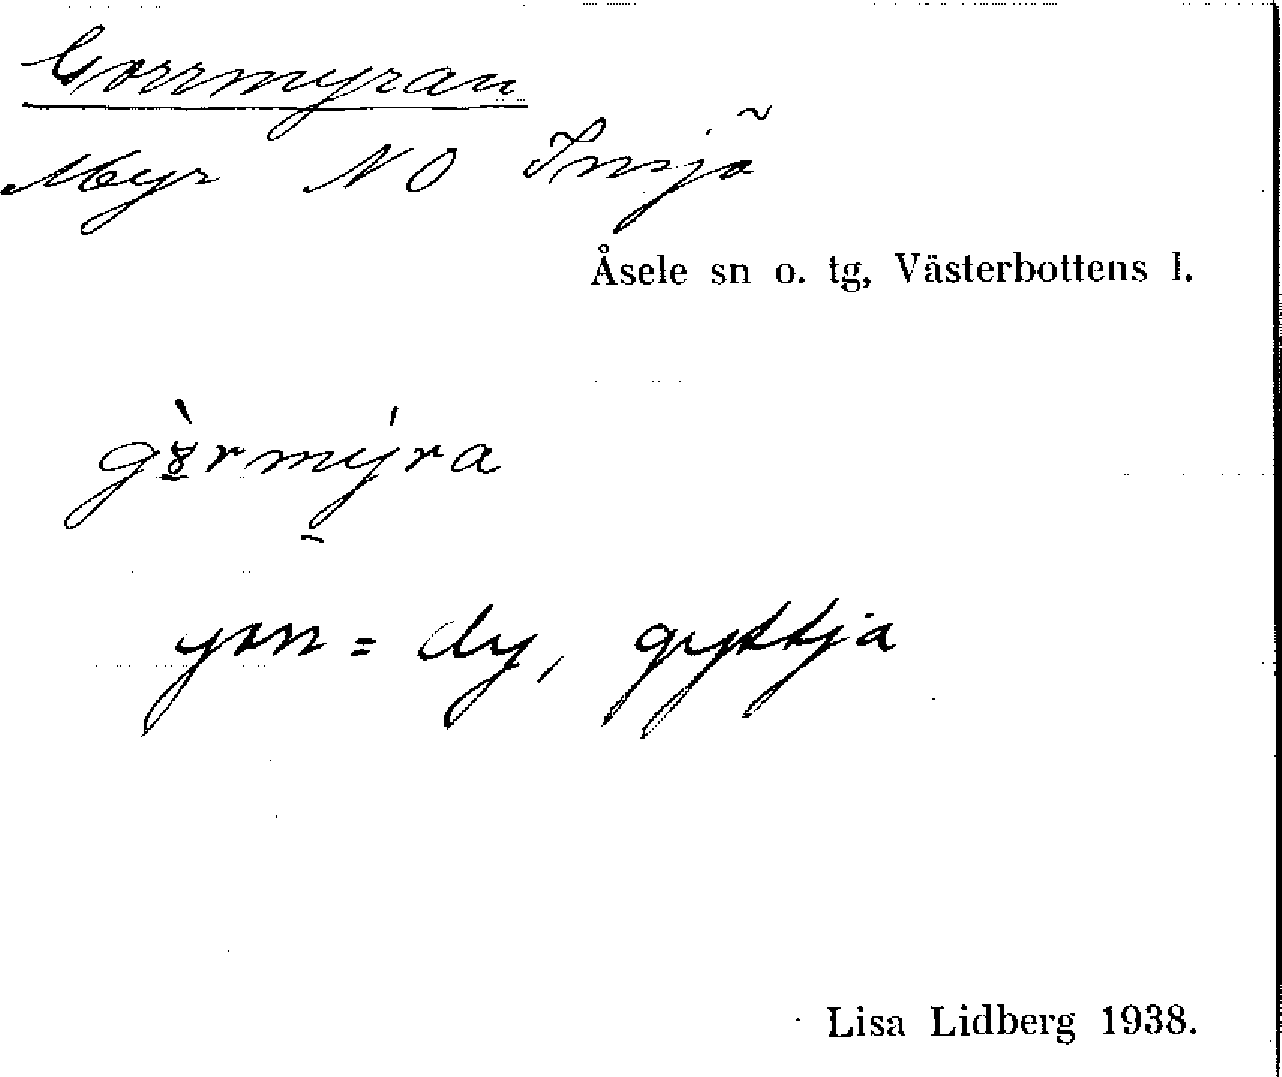 Gorrmyran
Myr NO Insjö
Åsele sn o. tg, Västerbottens l.
gòrmýra
gorr = dy, gyttja
Lisa Lidberg 1938.